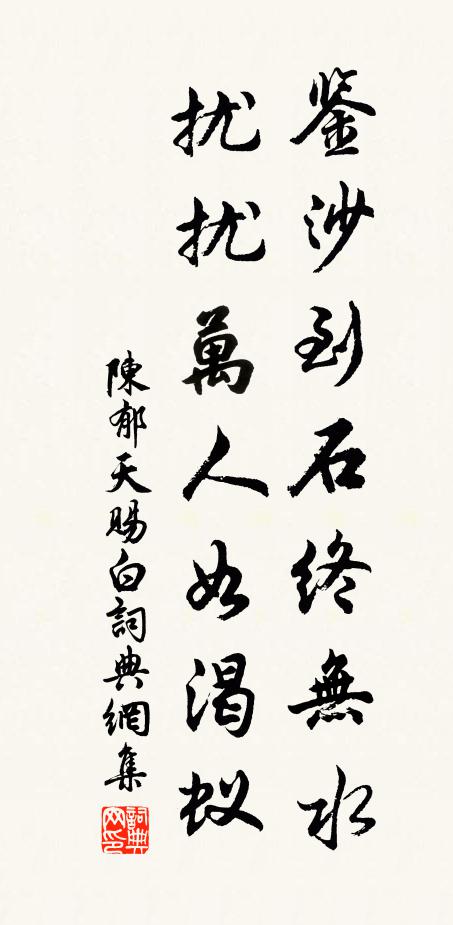 鉴沙到石终無水
扰扰萬人如渴蚁
陳郁天賜白詞典網集
詞典网印